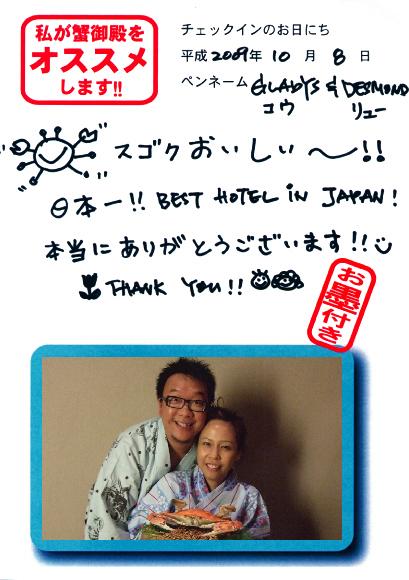 私が蟹御殿を
オススメ
します!!
チェックインのお日にち
平成 2009年 10 月 8 日
ペンネーム GLADYS & DESMOND
コウ リュー
スゴクおいしい〜!!
日本一!! BEST HOTEL IN JAPAN!
本当にありがとうございます!!
THANK YOU!!
お墨付き